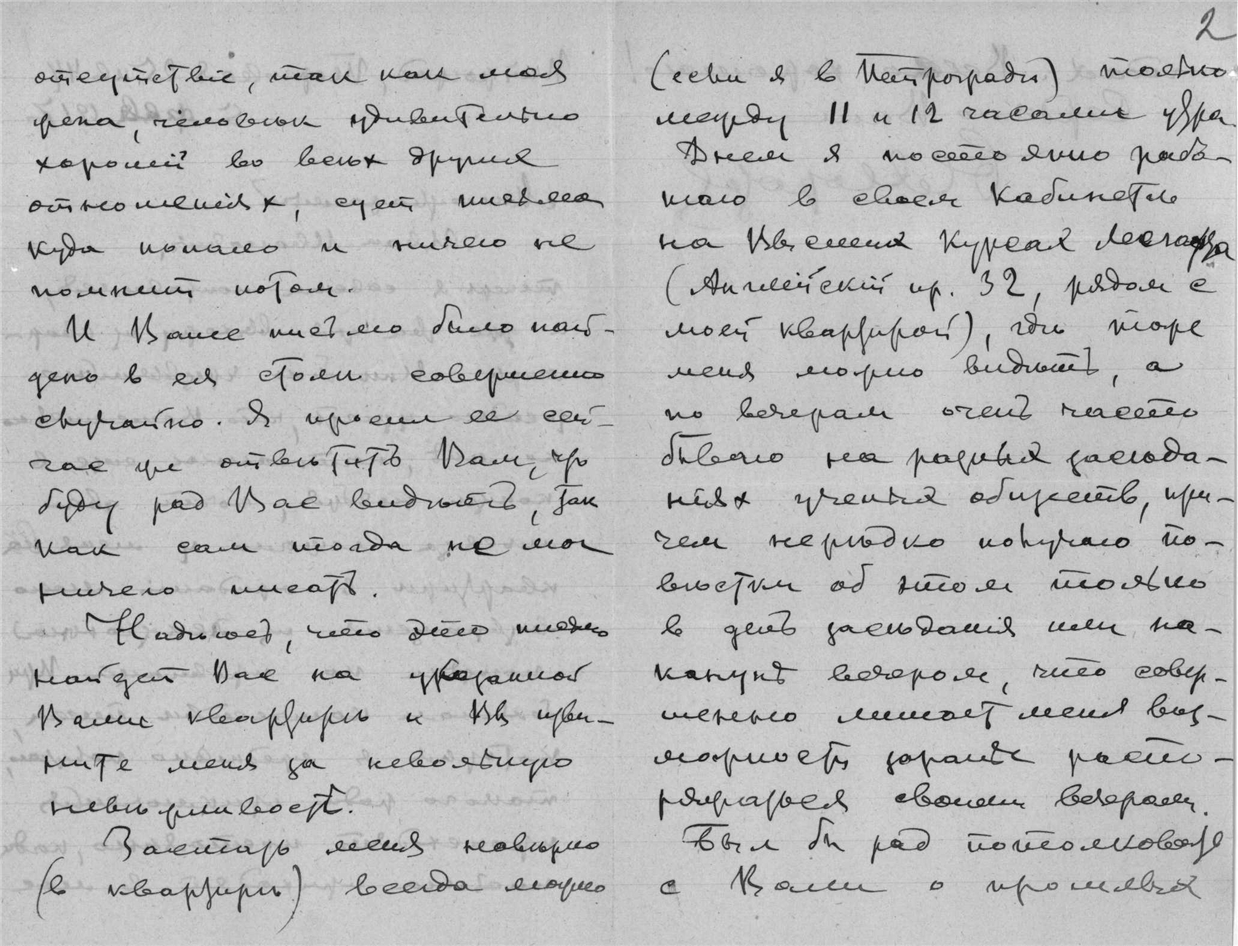 2
отсутствіе, так как моя
жена, человѣк удивительно
хорошій во всѣх других
отношеніях, сует письма
куда попало и ничего не
помнит потом.
И Ваше письмо было най-
дено в ея столѣ совершенно
случайно. Я просил ее сей-
час же отвѣтить Вам, что
буду рад Вас видѣть, так
как сам тогда не мог
ничего писать.
Надѣюсь, что это письмо
найдет Вас на указанной
Вами квартирѣ и Вы изви-
ните меня за невольную
невѣжливость.
Застать меня навѣрно
(в квартирѣ) всегда можно
(если я в Петроградѣ) только
между 11 и 12 часами утра
Днем я постоянно рабо-
таю в своем Кабинетѣ
на Высших Курсах Лесгафта
(Англійскій пр. 32, рядом с
моей квартирой), гдѣ тоже
меня можно видѣть, а
по вечерам очень часто
бываю на разных засѣда-
ніях ученых обществ, при-
чем нерѣдко получаю по-
вѣстки об этом только
в день засѣданія или на-
канунѣ вечером, что совер-
шенно лишает меня воз-
можность заранѣе распо-
ряжаться своим вечером.
Был бы рад потолковать
с Вами о прошлых